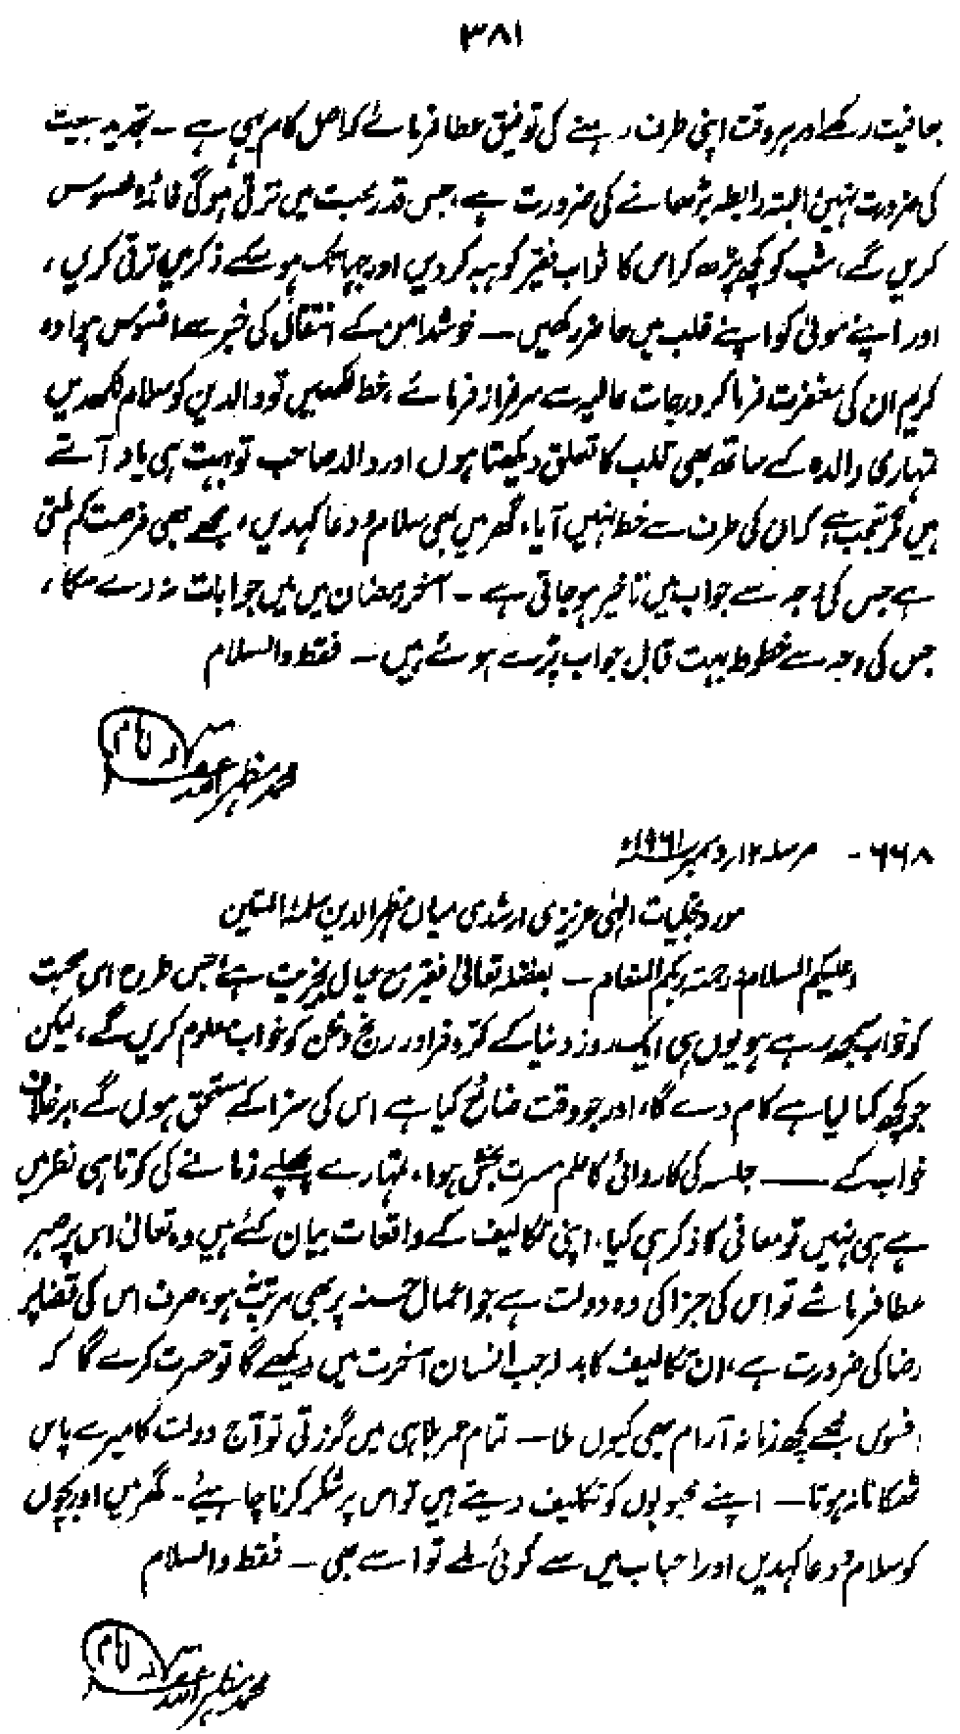 ۳۸۱
بعافیت رکھے اور ہر وقت اپنی طرف رہنے کی توفیق عطا فرمائے کہ اصل کام یہی ہے ۔ تجدید بیعت
کی ضرورت نہیں البتہ رابطہ بڑھانے کی ضرورت ہے، جس قدر محبت میں ترقی ہوگی فائدہ محسوس
کریں گے، شب کو کچھ پڑھ کر اس کا ثواب فقیر کو ہبہ کردیں اور جہانتک ہوسکے ذکر میں ترقی کریں،
اور اپنے مولیٰ کو اپنے قلب میں حاضر رکھیں ۔ خوشدامن کے انتقال کی خبر سے افسوس ہوا وہ
کریم ان کی مغفرت فرما کر درجات عالیہ سے سرفراز فرمائے، خط لکھیں تو والدین کو سلام لکھدیں
تمہاری والدہ کے ساتھ بھی قلب کا تعلق دیکھتا ہوں اور والد صاحب تو بہت ہی یاد آتے
ہیں مگر تعجب ہے کہ ان کی طرف سے خط نہیں آیا، گھر میں بھی سلام و دعا کہدیں، مجھے بھی فرصت کم ملتی
ہے جس کی وجہ سے جواب میں تاخیر ہوجاتی ہے ۔ آخر رمضان میں میں جوابات نہ دے سکا،
جس کی وجہ سے خطوط بہت قابل جواب پڑے ہوئے ہیں ۔ فقط والسلام
محمد مظہر اللہ
۶۶۸ - مرسلہ ۱۲ر دسمبر ۱۹۶۱ء
مورد تجلیات الٰہی عزیزی ارشدی میاں مظہر الدین سلمہٗ المتین
وعلیکم السلام ورحمۃ ربکم المنعام ۔ بفضلہ تعالیٰ فقیر مع عیال بخیریت ہے، جس طرح اس محبت
کو خواب سمجھ رہے ہو یوں ہی ایک روز دنیا کے کروفر اور رنج و محن کو خواب معلوم کریں گے، لیکن
جو کچھ کمالیا ہے کام دے گا، اور جو وقت ضائع کیا ہے اس کی سزا کے مستحق ہوں گے، برخلاف
خواب کے ــــــ جلسہ کی کاروائی کا علم مسرت بخش ہوا، تمہارے پچھلے زمانے کی کوتاہی نظر میں
ہے ہی نہیں تو معافی کا ذکر ہی کیا، اپنی تکالیف کے واقعات بیان کئے ہیں وہ تعالیٰ اس پر صبر
عطا فرمائے تو اس کی جزا کی وہ دولت ہے جو اعمال حسنہ پر بھی مرتب نہ ہو، صرف اس کی قضا پر
رضا کی ضرورت ہے، ان تکالیف کا بدلہ جب انسان آخرت میں دیکھے گا تو حسرت کرے گا کہ
افسوس مجھے کچھ زمانہ آرام بھی کیوں ملا ۔ تمام عمر بلا ہی میں گزرتی تو آج دولت کا میرے پاس
ٹھکانا نہ ہوتا ۔ اپنے محبوبوں کو تکلیف دیتے ہیں تو اس پر شکر کرنا چاہیئے ۔ گھر میں اور بچوں
کو سلام و دعا کہدیں اور احباب میں سے کوئی ملے تو اسے بھی ۔ فقط والسلام
محمد مظہر اللہ